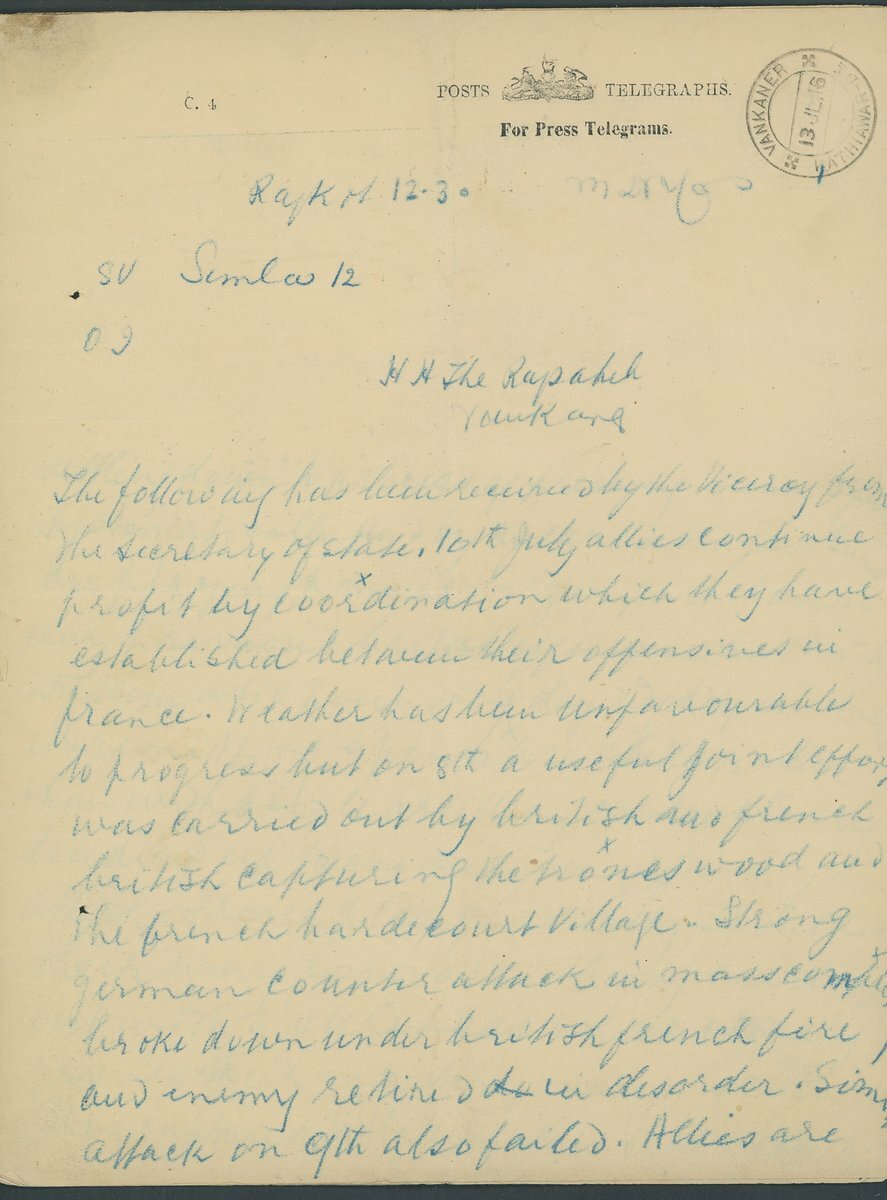 C. 4
POSTS TELEGRAPHS.
For Press Telegrams.
VANKANER
13 JL. 16
KATHIAWAR
Rajkot 12.30
SV Semla 12
H H The
The following has been received by the Viceroy from
the Secretary of state. 10th July allies continue
profit by coordination which they have
established between their offensives in
france. Weather has been unfavourable
to progress but on 8th a useful Joint effort
was carried out by british and french
british capturing the trones wood and
the french hardecourt Village. Strong
german counter attack in mass
broke down under british french fire
and enemy retired in disorder.
attack on 9th also failed. Allies are